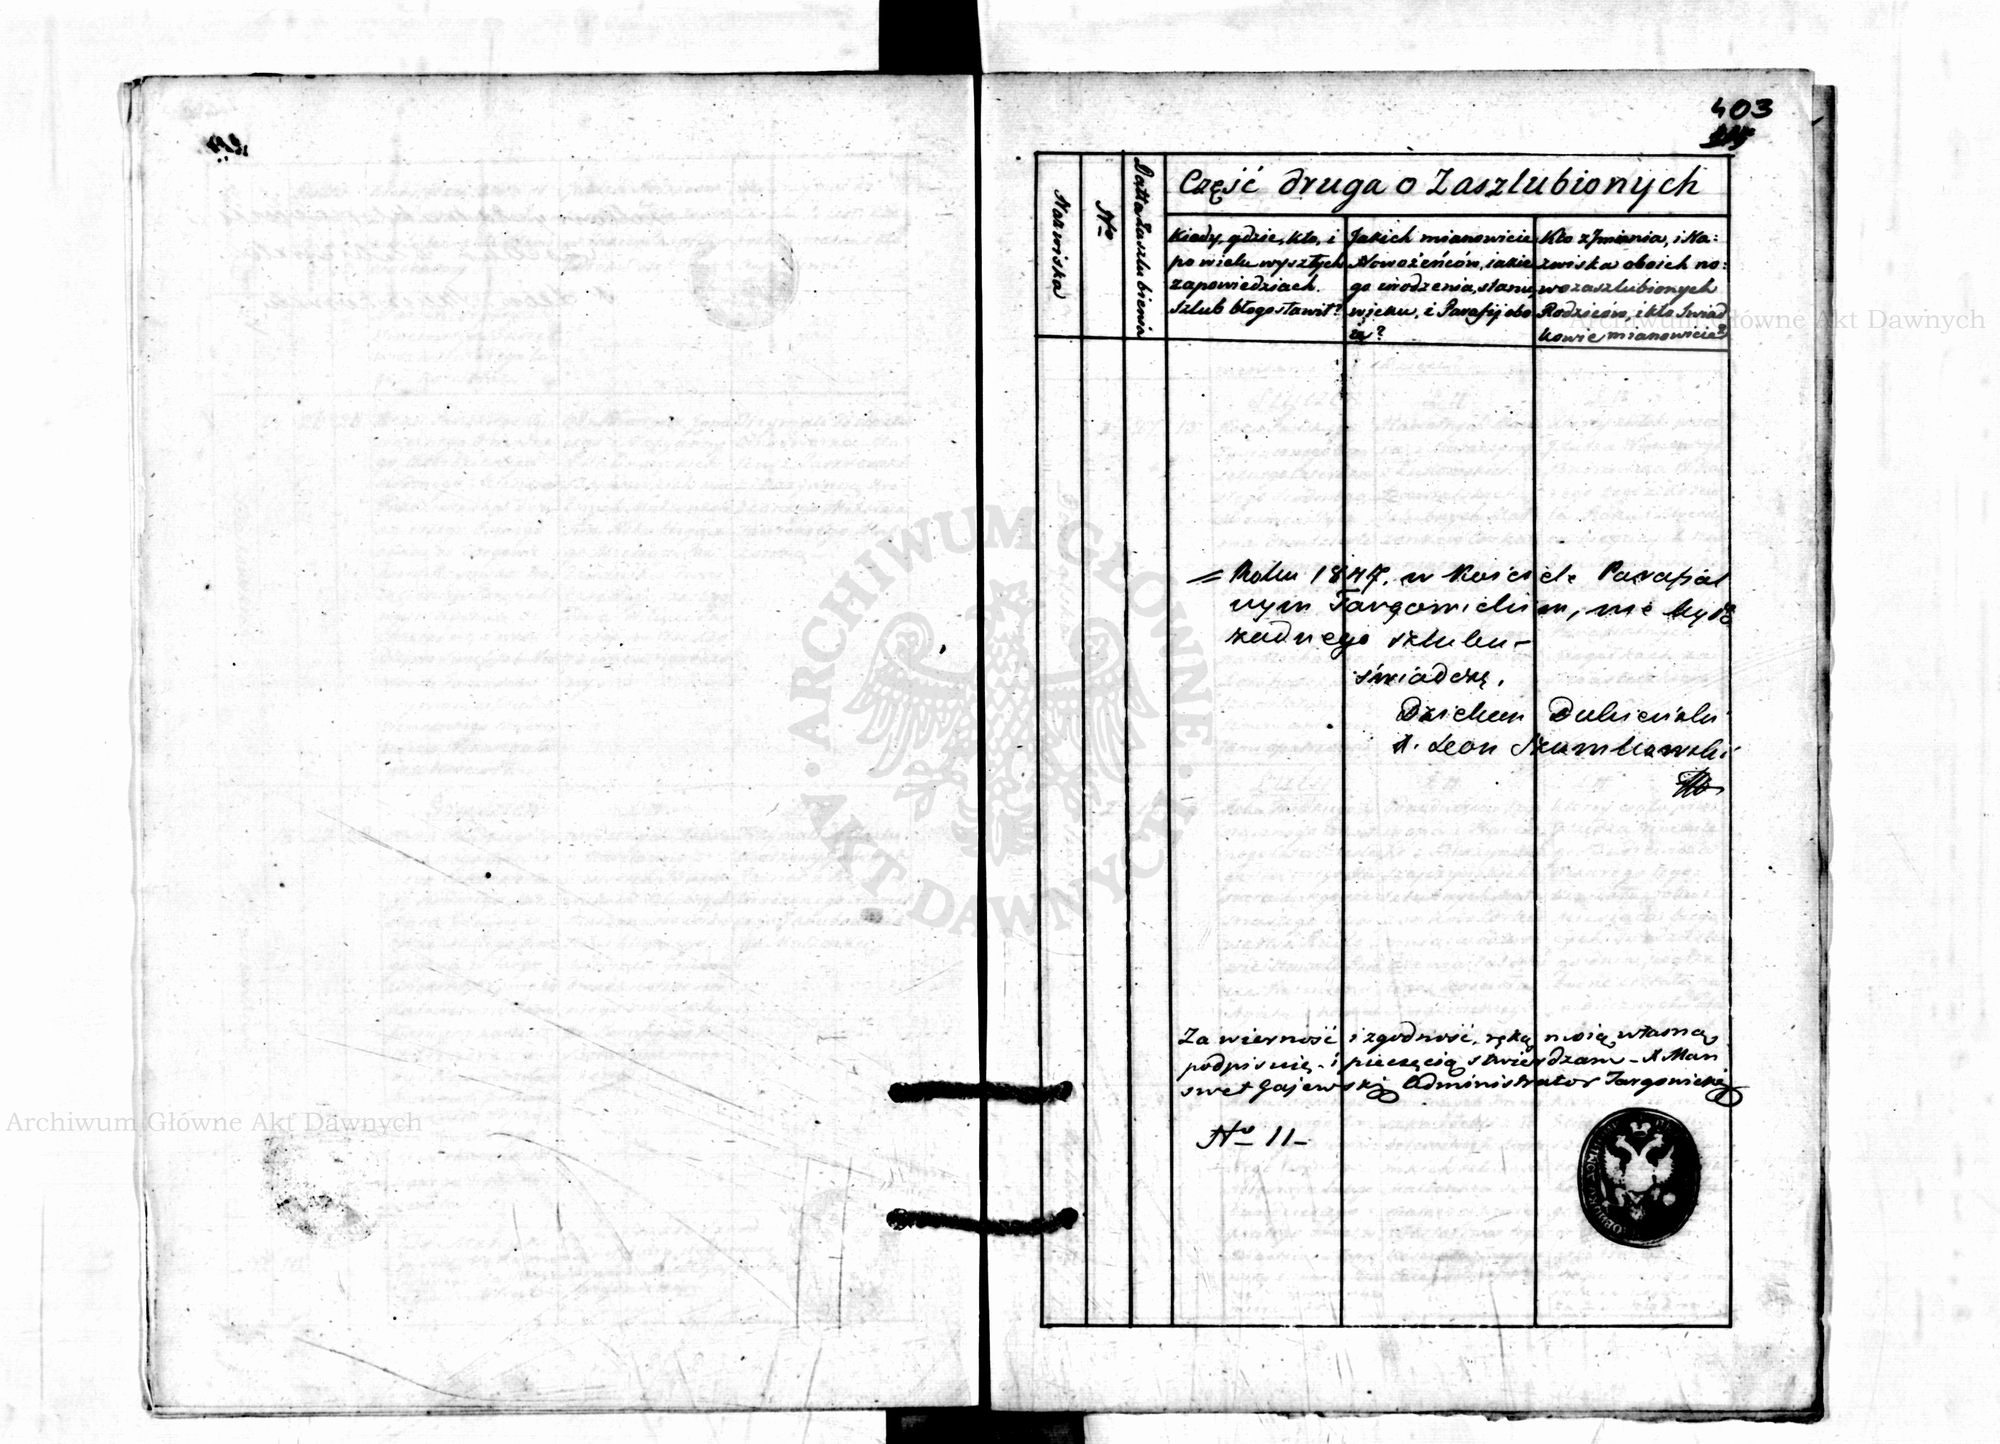 403
Nazwiska
No
Datta Zaszlubienia
Część druga o Zaszlubionych
Kiedy, gdzie, kto, i
po wielu wyszłych
zapowiedziach.
Szlub błogosławił?
Jakich mianowicie
Nowożeńców, iakie
go urodzenia, stanu,
wieku, i Parafij obo
ią?
Kto z Jmienia, i Na:
zwiska oboich no:
wozaszlubionych
Rodziców, i kto Swiad
kowie mianowicie?
Roku 1847. w Kościele Parafial
nym Targowickim, nie było
żadnego szlubu –
świadczę.
Dziekan
X. Leon
Za wierność i zgodność, ręką moią własną
podpisuię – i pieczęcią stwierdzam – X Man
swet Gajewski Administrator Targowicki
No 11 –
Archiwum Główne Akt Dawnych
Archiwum Główne Akt Dawnych
ARCHIWUM GŁÓWNE
AKT DAWNYCH